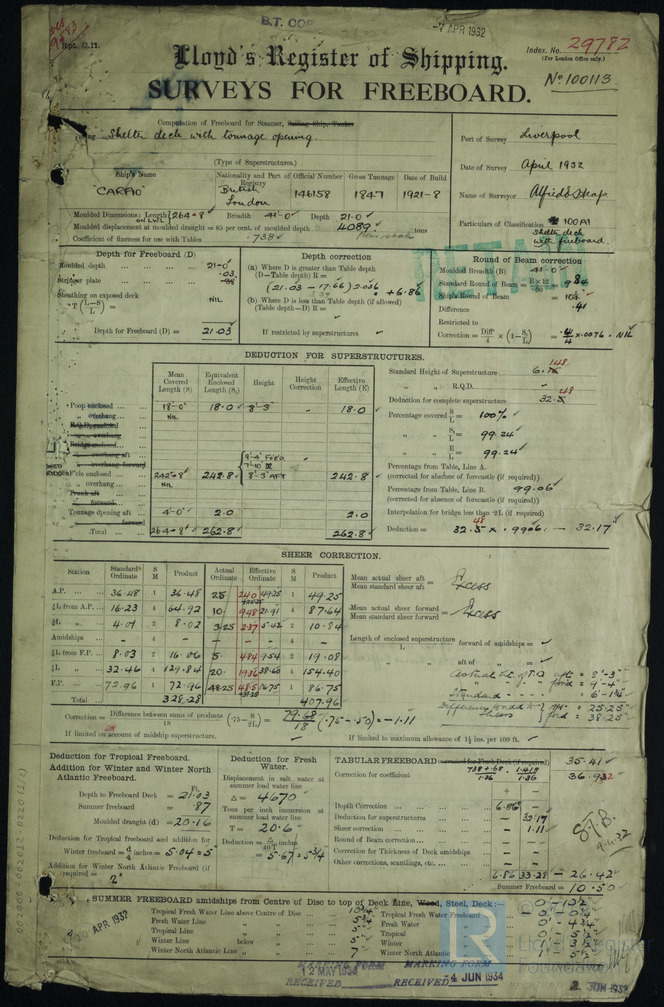 B.T. COP
-7 APR 1932
Rpt. C.11.
Index. No. 29782
(For London Office only.)
Lloyd's Register of Shipping.
No 100113
SURVEYS FOR FREEBOARD.
Computation of Freeboard for Steamer, Sailing Ship, Tanker
Shelter deck with tonnage opening.
(Type of Superstructures.)
Port of Survey Liverpool
Date of Survey April 1932
Name of Surveyor Alfred S. Heap
Particulars of Classification 100A1
Shelter deck
with freeboard.
Ship's Name
Nationality and Port of Registry
Official Number
Gross Tonnage
Date of Build
"CARPIO"
British
London
146158
1847
1921-8
Moulded Dimensions: Length 264'-8" Breadth 41'-0 Depth 21-0
on LWL
Moulded displacement at moulded draught = 85 per cent. of moulded depth 4089 tons
Coefficient of fineness for use with Tables .738
Depth for Freeboard (D)
Moulded depth 21-0
Stringer plate .03
Sheathing on exposed deck NIL
Depth for Freeboard (D) = 21.03
Depth correction
(a) Where D is greater than Table depth
(D-Table depth) R =
(21.03 - 17.66) 2.036 + 6.86
(b) Where D is less than Table depth (if allowed)
(Table depth-D) R =
If restricted by superstructures
Round of Beam correction
Moulded Breadth (B) 41-0
Standard Round of Beam = B x 12 / 50 = 9.84
Ship's Round of Beam = 10¼
Difference .41
Restricted to
Correction = Diff / 4 x (1 - S₁/L) = .41/4 x .0076 = NIL
DEDUCTION FOR SUPERSTRUCTURES.
Mean Covered Length (S)
Equivalent Enclosed Length (S₁)
Height
Height Correction
Effective Length (E)
Poop enclosed 18'-0" 18.0 8'-3" 18.0
" overhang NIL
R.Q.D. enclosed
" overhang
Bridge enclosed
" overhang aft
" overhang forward
9'-4" FORD
7'-10"
F'cle enclosed 242'-8" 242.8 8'-3" AFT 242.8
" overhang NIL
Trunk aft
" forward
Tonnage opening aft 4'-0" 2.0 2.0
" forward
Total 264'-8" 262.8 262.8
Standard Height of Superstructure 6.148
" " R.Q.D. -
Deduction for complete superstructure 32.48
Percentage covered S/L = 100%
" " S₁/L = 99.24
" " E/L = 99.24
Percentage from Table, Line A.
(corrected for absence of forecastle (if required))
Percentage from Table, Line B. 99.06
(corrected for absence of forecastle (if required))
Interpolation for bridge less than ·2L (if required)
Deduction = 32.48 x .9906 = 32.17
SHEER CORRECTION.
Station
Standard Ordinate
S M
Product
Actual Ordinate
Effective Ordinate
S M
Product
A.P. 36.48 1 36.48 25 24.0 49.25 1 49.25
⅙L from A.P. 16.23 4 64.92 10 9.48 21.91 4 87.64
⅓L " 4.01 2 8.02 3.25 2.37 5.42 2 10.84
Amidships - 4 - - - 4 -
⅓L from F.P. 8.03 2 16.06 5 4.84 9.54 2 19.08
⅙L " 32.46 4 129.84 20 19.36 38.60 4 154.40
F.P. 72.96 1 72.96 48.25 48.5 86.75 1 86.75
Total 328.28 407.96
Mean actual sheer aft / Mean standard sheer aft = Excess
Mean actual sheer forward / Mean standard sheer forward = Excess
Length of enclosed superstructure forward of amidships =
" " aft of " =
Actual ht. of S.D. aft = 8'-3"
" " ford = 9'-4"
Standard = 6'-1¾"
Difference to add to sheers } Aft = 25.25
ford = 38.25
Correction = Difference between sums of products / 18 (·75 - S/2L) = 79.68/18 (.75-.50) = -1.11
If limited on account of midship superstructure.
If limited to maximum allowance of 1½ ins. per 100 ft.
Deduction for Tropical Freeboard.
Addition for Winter and Winter North
Atlantic Freeboard.
Depth to Freeboard Deck = 21.03
Summer freeboard = .87
Moulded draught (d) = 20.16
Deduction for Tropical freeboard and addition for
Winter freeboard = d/4 inches = 5.04 = 5"
Addition for Winter North Atlantic Freeboard (if
required) = 2"
Deduction for Fresh
Water.
Displacement in salt water at
summer load water line
Δ = 4670
Tons per inch immersion at
summer load water line
T = 20.6
Deduction = Δ / 40T inches
= 5.67 = 5¾
TABULAR FREEBOARD corrected for Flush Deck (if required) 35.41
Correction for coefficient .738+.68 / 1.36 = 1.418 / 1.36 36.932
+ -
Depth Correction 6.86 -
Deduction for superstructures - 32.17
Sheer correction - 1.11
Round of Beam correction - -
Correction for Thickness of Deck amidships - -
Other corrections, scantlings, etc. - -
6.86 33.28 - 26.42
Summer Freeboard = 10.50
9.4.32
SUMMER FREEBOARD amidships from Centre of Disc to top of Deck Line, Wood, Steel, Deck:- 0-10½
Tropical Fresh Water Line above Centre of Disc 10¾
Fresh Water Line " 5¾
Tropical Line " 5"
Winter Line below " 5"
Winter North Atlantic Line " " 7"
Tropical Fresh Water Freeboard - 0-0¼
Fresh Water " 0-4¾
Tropical " 0-5½
Winter " 1-3½
Winter North Atlantic " 1-5½
20 APR 1932
MARKING FORM
12 MAY 1933
RECEIVED
MARKING FORM
RECEIVED 4 JUN 1934
2 JUN 1932
LR
Lloyd's Register
Foundation